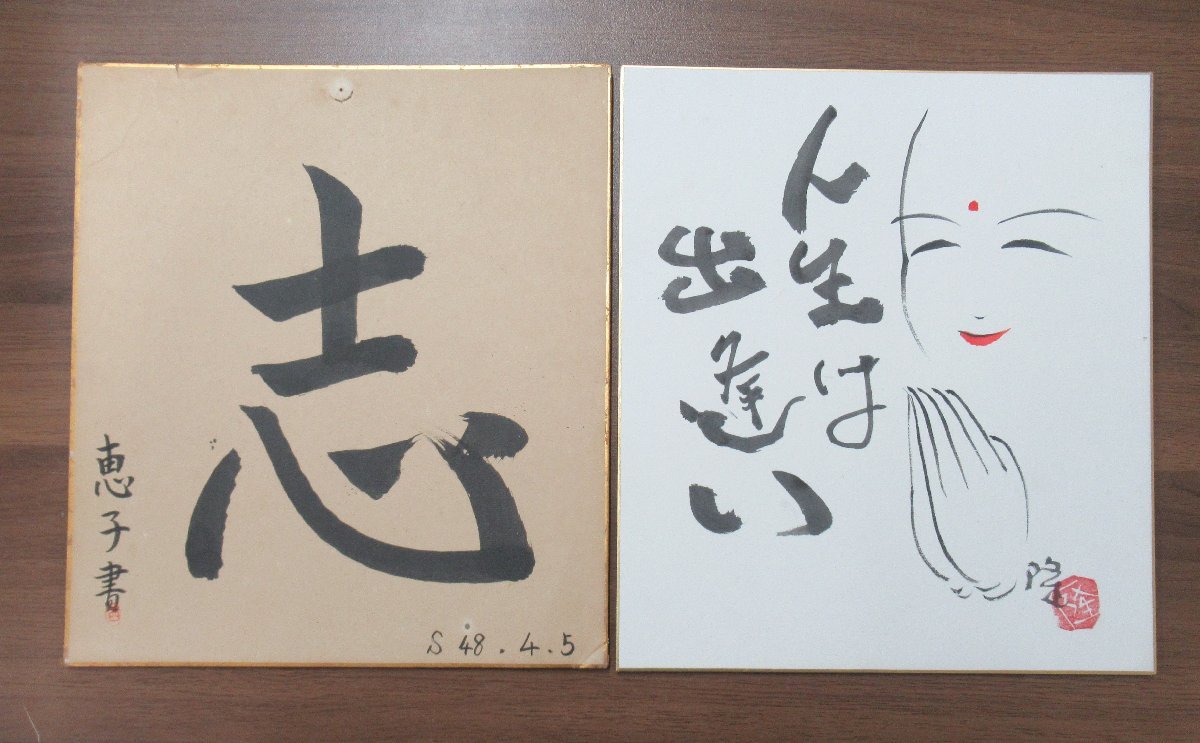 志
恵子書
S 48.4.5
人生は
出逢い
隆